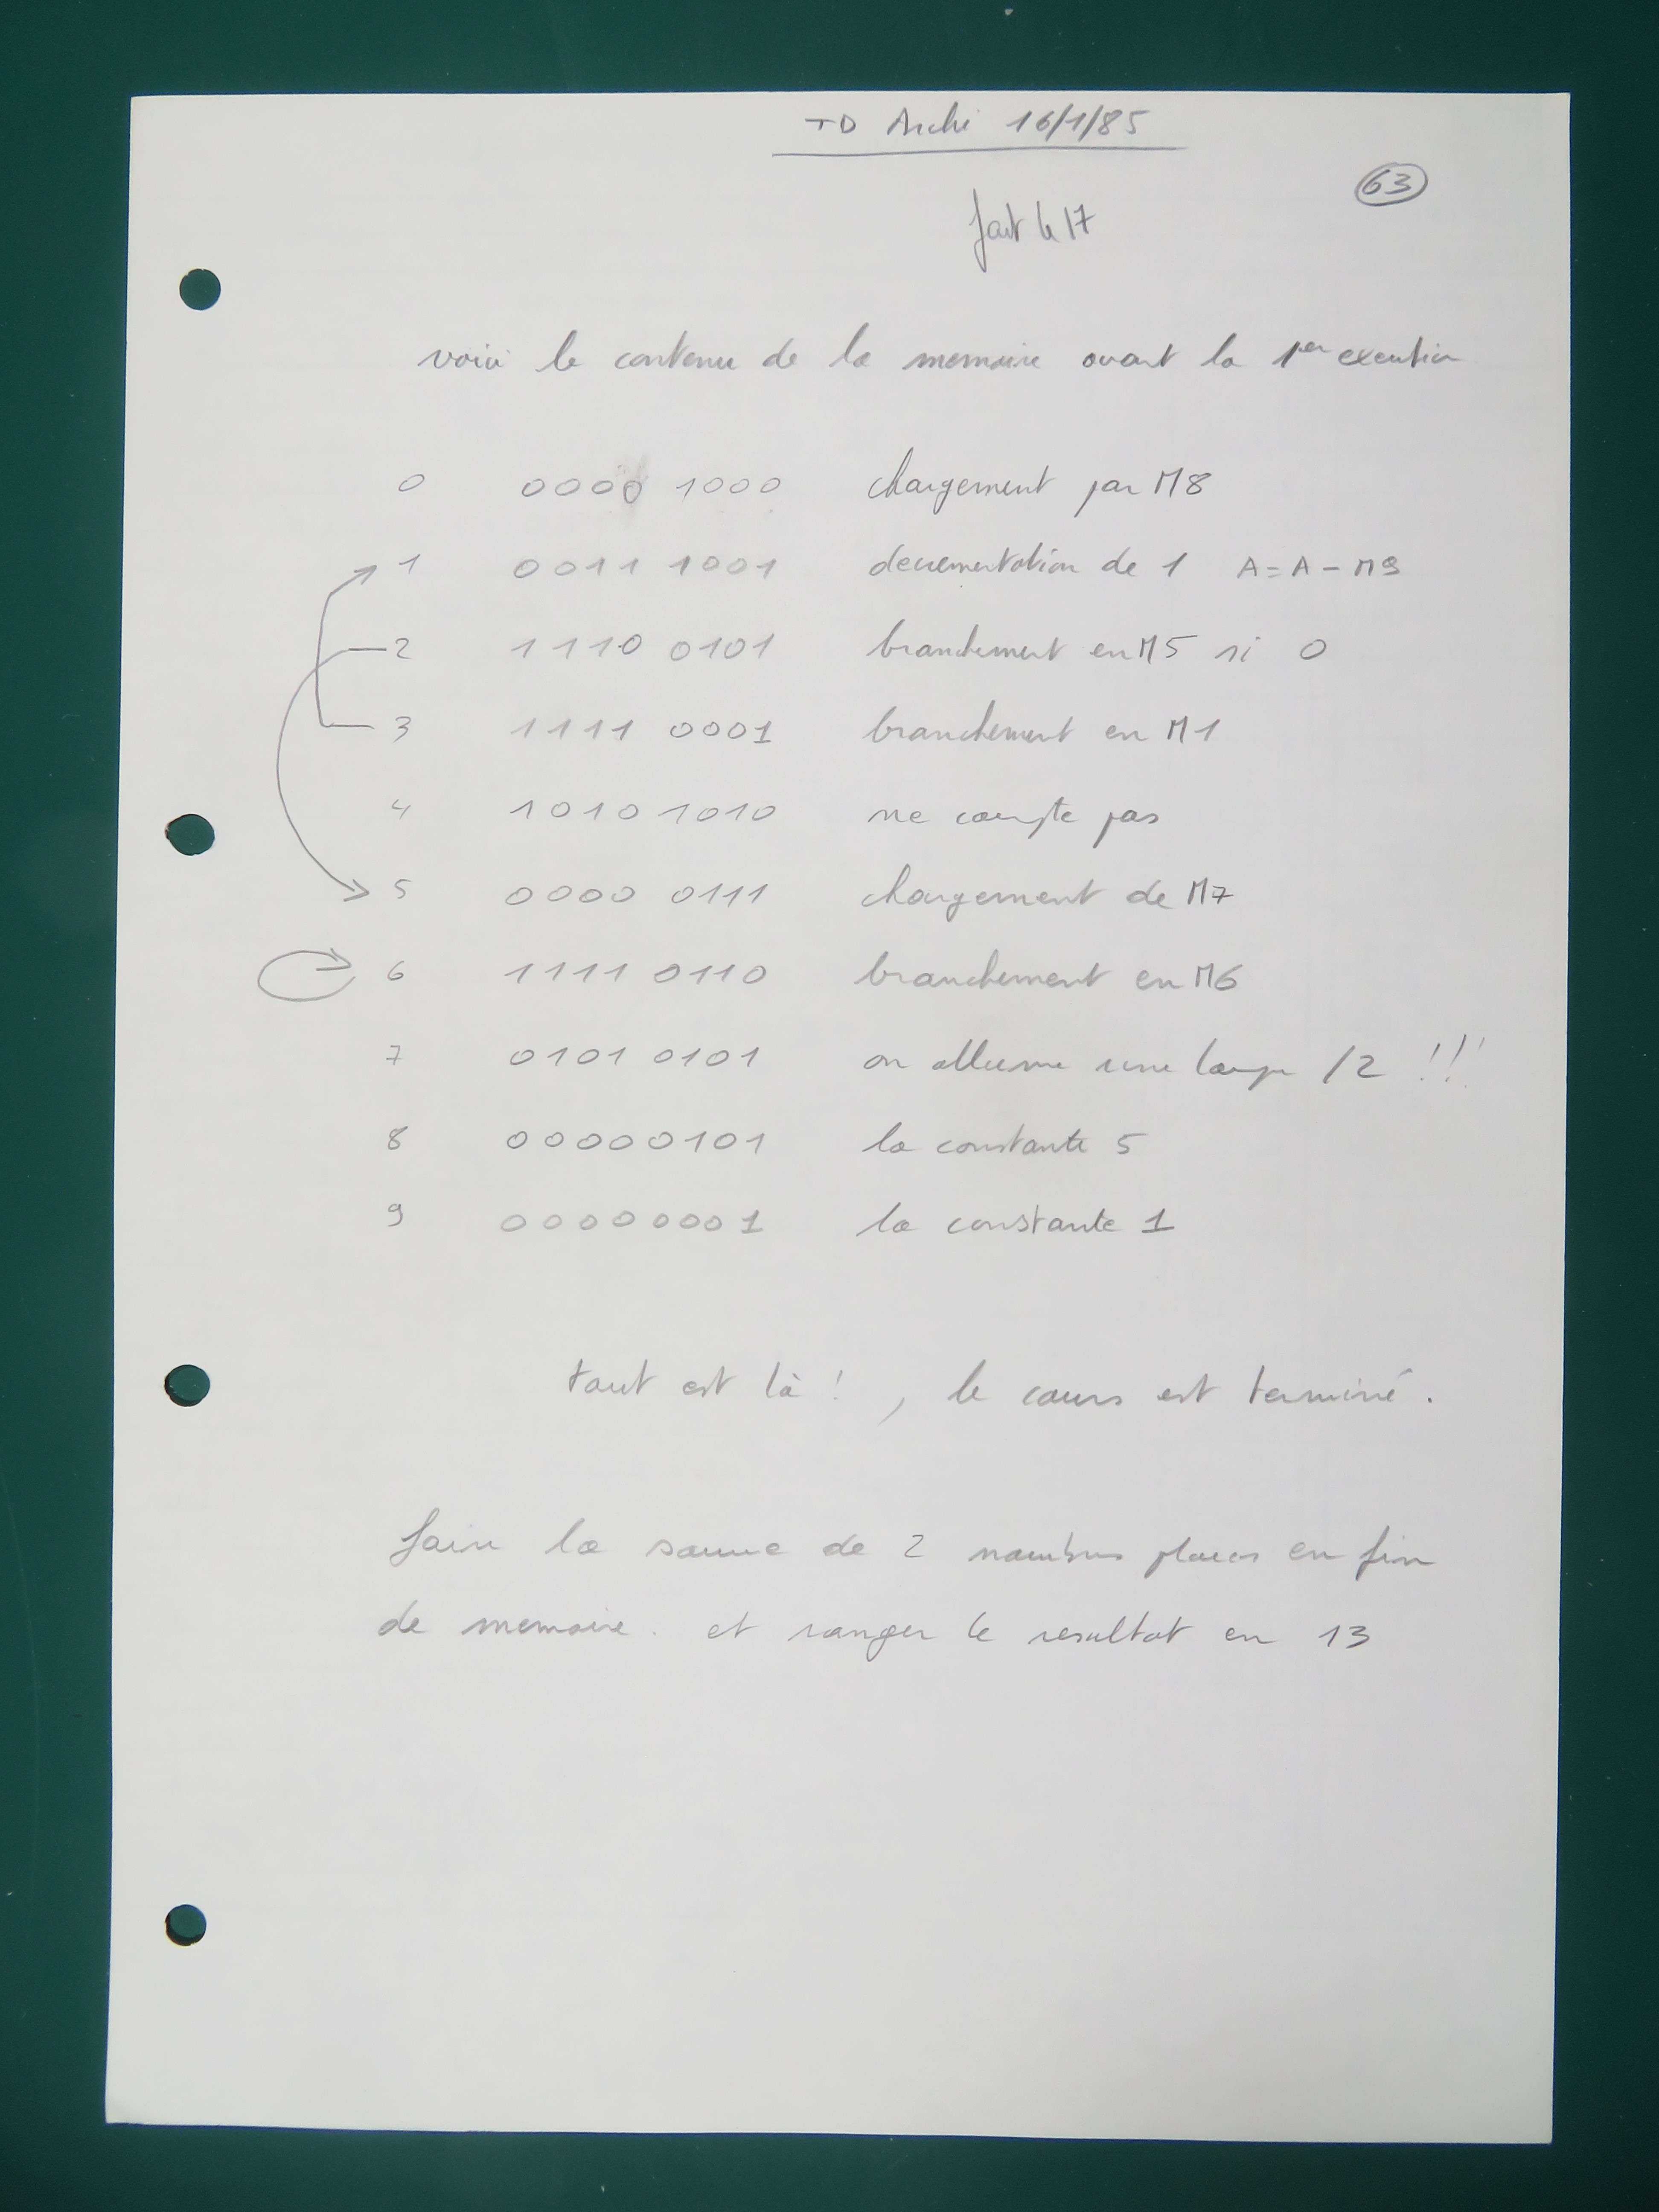 TD Archi 16/1/85
63
fait le 17
voici le contenu de la memoire avant la 1ere execution
0 0000 1000 chargement par M8
1 0011 1001 decrementation de 1 A=A-M9
2 1110 0101 branchement en M5 si 0
3 1111 0001 branchement en M1
4 1010 1010 ne compte pas
5 0000 0111 chargement de M7
6 1111 0110 branchement en M6
7 0101 0101 on allume une lampe /2 !!!
8 00000101 la constante 5
9 00000001 la constante 1
tout est là ! , le cours est terminé.
faire la somme de 2 nombres places en fin
de memoire. et ranger le resultat en 13